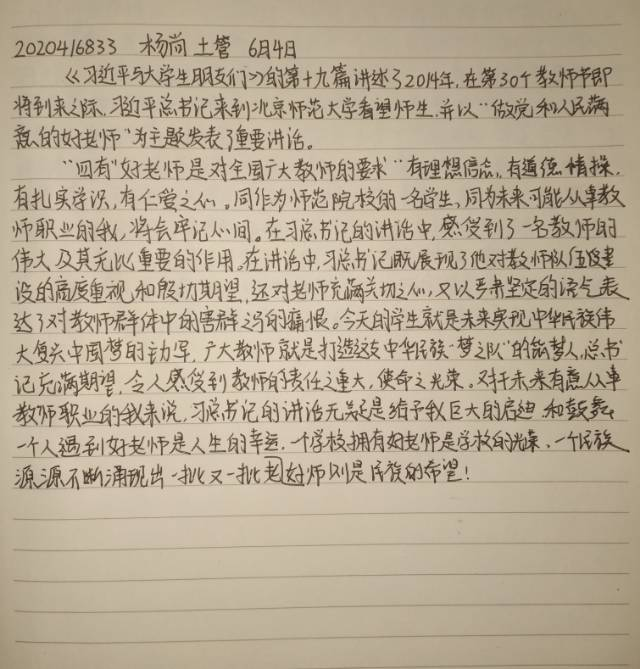 2020416833 杨尚 土管 6月4日
《习近平与大学生朋友们》的第十九篇讲述了2014年，在第30个教师节即
将到来之际，习近平总书记来到北京师范大学看望师生，并以“做党和人民满
意的好老师”为主题发表了重要讲话。
“四有”好老师是对全国广大教师的要求“有理想信念，有道德情操，
有扎实学识，有仁爱之心。同作为师范院校的一名学生，同为未来可能从事教
师职业的我，将会牢记心间。在习总书记的讲话中，感受到了一名教师的
伟大及其无比重要的作用。在讲话中，习总书记既展现了他对教师队伍建
设的高度重视和殷切期望，还对老师充满关切之心，又以严肃坚定的语气表
达了对教师群体中的害群之马的痛恨。今天的学生就是未来实现中华民族伟
大复兴中国梦的动军，广大教师就是打造这支中华民族“梦之队”的筑梦人，总书
记充满期望，令人感受到教师的责任之重大，使命之光荣。对于未来有意从事
教师职业的我来说，习总书记的讲话无疑是给予我巨大的启迪和鼓舞。
一个人遇到好老师是人生的幸运，一个学校拥有好老师是学校的光荣，一个民族
源源不断涌现出一批又一批老好师则是民族的希望！